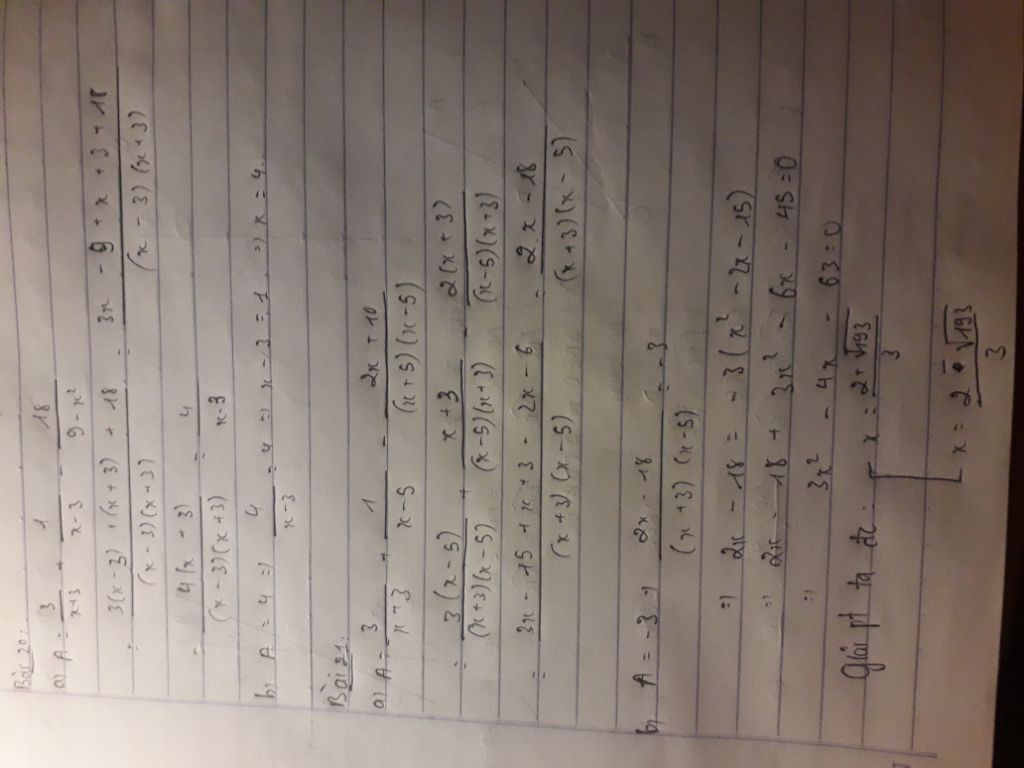 Bài 20:
a) A = 3/(x+3) + 1/(x-3) - 18/(9-x²)
= (3(x-3) + (x+3) + 18)/((x-3)(x+3)) = (3x - 9 + x + 3 + 18)/((x-3)(x+3))
= 4(x-3)/((x-3)(x+3)) = 4/(x-3)
b) A = 4 => 4/(x-3) = 4 => x - 3 = 1 => x = 4.
Bài 21.
a) A = 3/(x+3) + 1/(x-5) - (2x+10)/((x+5)(x-5))
= 3(x-5)/((x+3)(x-5)) + (x+3)/((x-5)(x+3)) - 2(x+3)/((x-5)(x+3))
= (3x - 15 + x + 3 - 2x - 6)/((x+3)(x-5)) = (2x - 18)/((x+3)(x-5))
b) A = -3 => (2x - 18)/((x+3)(x-5)) = -3
=> 2x - 18 = -3(x² - 2x - 15)
=> 2x - 18 + 3x² - 6x - 45 = 0
=> 3x² - 4x - 63 = 0
Giải pt ta đc: [ x = (2+√193)/3
[ x = (2-√193)/3